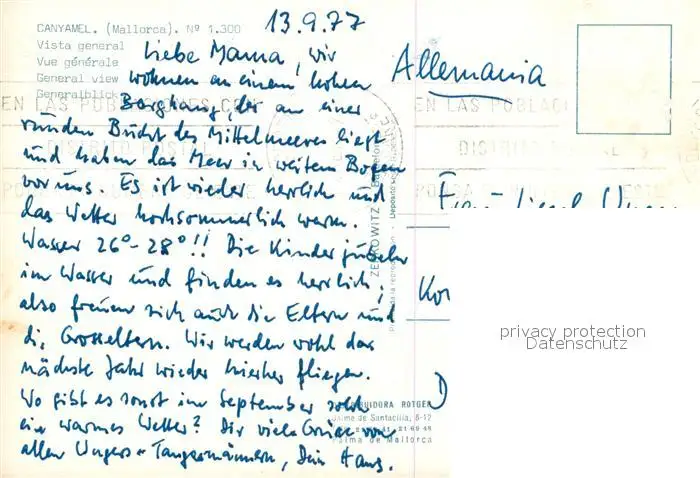 CANYAMEL. (Mallorca). Nº 1.300
Vista general
Vue générale
General view
Generalblick
13.9.77
Liebe Mama, wir
wohnen an einem hohen
Berghang, der an einer
runden Bucht des Mittelmeeres liegt
und haben das Meer in weitem Bogen
vor uns. Es ist wieder herrlich und
das Wetter hochsommerlich warm.
Wasser 26°-28°!! Die Kinder jubeln
im Wasser und finden es herrlich.
also freuen sich auch die Eltern und
die Grosseltern. Wir werden wohl das
nächste Jahr wieder hierher fliegen.
Wo gibt es sonst im September solch
ein warmes Wetter? Dir viele Grüsse von
allen Ungers - Tangermännern, Dein Hans.
Allemania
EN LAS POBLACIONES CON
DISTRITO POSTAL
EN LAS POBLACI
DISTRI
Frau
Kor
D
ZERKOWITZ
Barcelona
ROTGER
Jaime de Santacilia, 8-12
Palma de Mallorca
privacy protection
Datenschutz